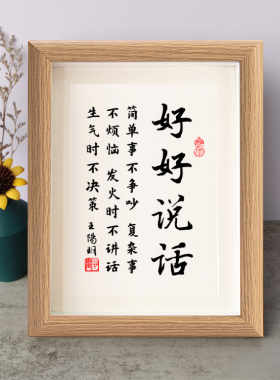 好好说话
简单事不争吵 复杂事
不烦恼 发火时不讲话
生气时不决策
王陽明